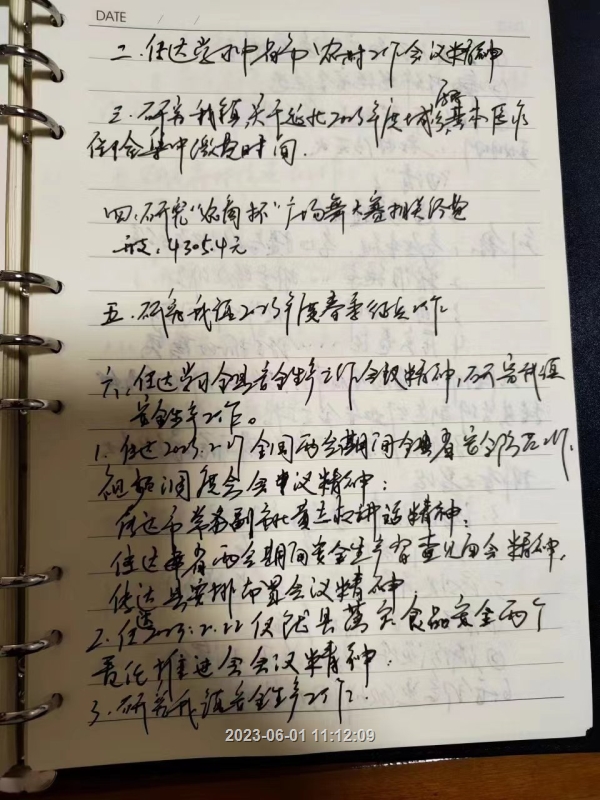 DATE / /
二、传达学习中省市农村工作会议精神
三、研究我镇关于延长2023年度城乡居民基本医疗
保险集中缴费时间.
四、研究“ 杯”广场舞大赛相关经费
43054元
五、研究我镇2023年度春季征兵工作.
六、传达学习全县安全生产工作会议精神,研究我镇
安全生产工作。
1. 传达2023.2.27全国两会期间全县 安全 工作
调度会会议精神:
传达市常务副市长 讲话精神;
传达 省两会期间安全生产 会精神,
传达县安排部署会议精神
2. 传达2023.2.22 县 食品安全两个
责任推进会会议精神.
3. 研究我镇安全生产工作.
2023-06-01 11:12:09